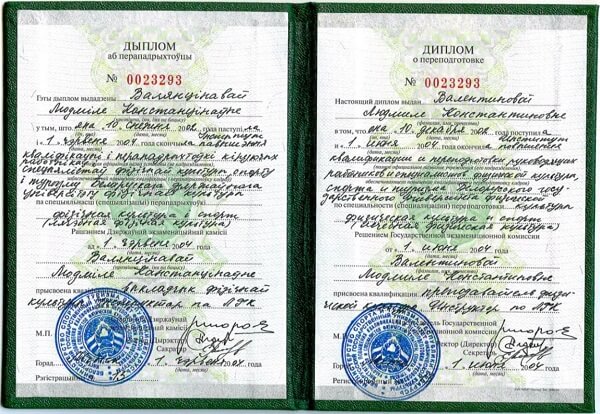 ДЫПЛОМ
аб перападрыхтоўцы
№ 0023293
Гэты дыплом выдадзены Валянцінавай
Людміле Канстанцінаўне
у тым, што яна 10 снежня 2002 года паступіла
1 чэрвеня 2004 года скончыла павышэння
кваліфікацыі і перападрыхтоўкі кіруючых
работнікаў і спецыялістаў фізічнай культуры, спорту
і турызму Беларускага дзяржаўнага
ўніверсітэта фізічнай культуры
па спецыяльнасці (спецыялізацыі) перападрыхтоўкі
фізічная культура і спорт
(лячэбная фізічная культура)
Рашэннем Дзяржаўнай экзаменацыйнай камісіі
ад 1 чэрвеня 2004 года
Валянцінавай
Людміле Канстанцінаўне
прысвоена кваліфікацыя выкладчык фізічнай
культуры. Інструктар па ЛФК
М.П.
Горад
1 чэрвеня 2004
Рэгістрацыйны
ДИПЛОМ
о переподготовке
№ 0023293
Настоящий диплом выдан Валентиновой
Людмиле Константиновне
в том, что она 10 декабря 2002 года поступила в
Институт
1 июня 2004 года окончила повышения
квалификации и переподготовки руководящих
работников и специалистов физической культуры,
спорта и туризма Белорусского госу-
дарственного университета физической
культуры
по специальности (специализации) переподготовки
физическая культура и спорт
(лечебная физическая культура)
Решением Государственной экзаменационной комиссии
от 1 июня 2004 года
Валентиновой
Людмиле Константиновне
присвоена квалификация преподаватель физи-
ческой культуры. Инструктор по ЛФК
Государственной
экзаменационной комиссии
М.П.
Ректор (Директор)
Секретарь
Город
1 июня 2004
Регистрационный №